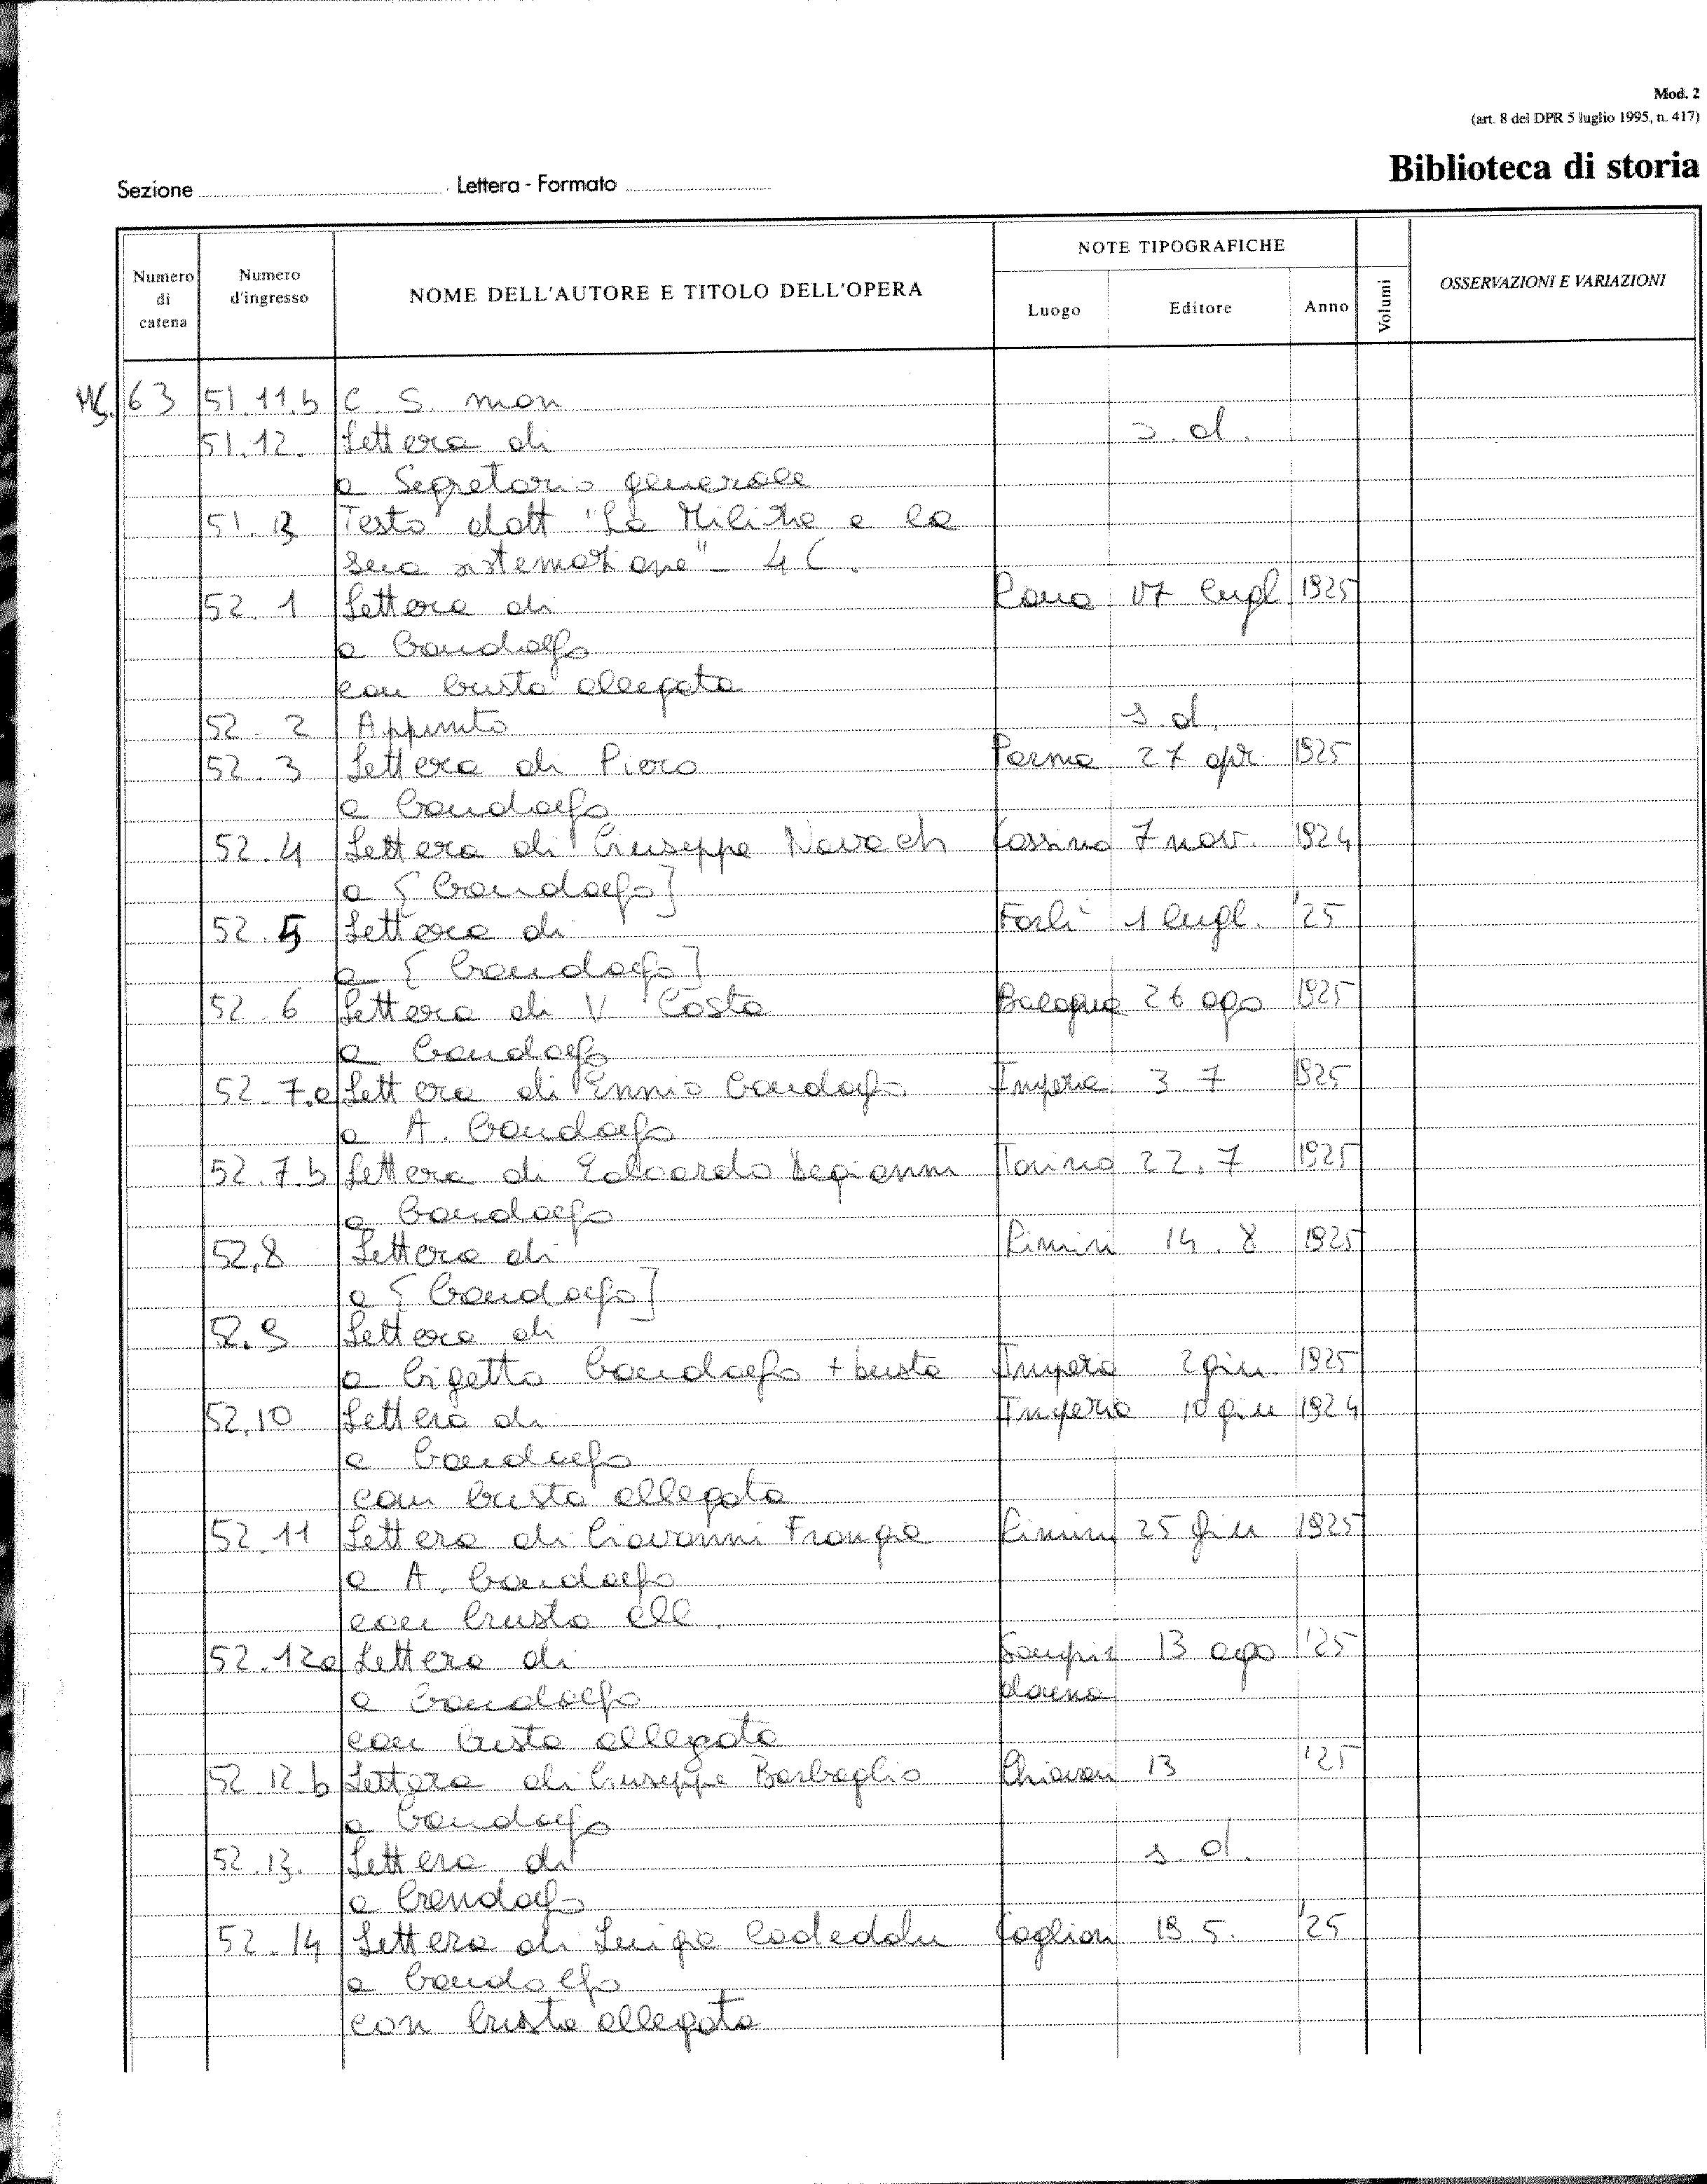 Mod. 2
(art. 8 del DPR 5 luglio 1995, n. 417)
Biblioteca di storia
Sezione Lettera - Formato
Numero di catena Numero d'ingresso NOME DELL'AUTORE E TITOLO DELL'OPERA NOTE TIPOGRAFICHE Luogo Editore Anno Volumi OSSERVAZIONI E VARIAZIONI
Ms. 63 51.11.b C. S. man
51.12. Lettera di s.d.
a Segretario generale
51.13 Testo datt "La Milizia e la
sua sistemazione" - 4 C.
52.1 Lettera di Roma 17 lugl 1925
a Gandolfo
con busta allegata
52.2 Appunto s.d.
52.3 Lettera di Piero Parma 27 apr. 1925
a Gandolfo
52.4 Lettera di Giuseppe Cassino 7 nov. 1924
a [Gandolfo]
52.5 Lettera di Forlì 1 lugl. '25
a [Gandolfo]
52.6 Lettera di V. Costa Bologna 26 ago 1925
a Gandolfo
52.7.a Lettera di Ennio Gandolfo Imperia 3 7 1925
a A. Gandolfo
52.7.b Lettera di Edoardo Degianni Torino 22.7 1925
a Gandolfo
52.8 Lettera di Rimini 14.8 1925
a [Gandolfo]
52.9 Lettera di
a Gigetto Gandolfo + busta Imperia 2 giu. 1925
52.10 Lettera di Imperia 10 giu 1924
a Gandolfo
con busta allegata
52.11 Lettera di Giovanni Frongia Rimini 25 giu 1925
a A. Gandolfo
con busta all.
52.12a Lettera di Sampier 13 ago '25
a Gandolfo darena
con busta allegata
52.12.b Lettera di Giuseppe Barbaglio Chiavari 13 '25
a Gandolfo
52.13. Lettera di s.d.
a Gandolfo
52.14 Lettera di Luigia Cadeddu Cagliari 19.5. '25
a Gandolfo
con busta allegata